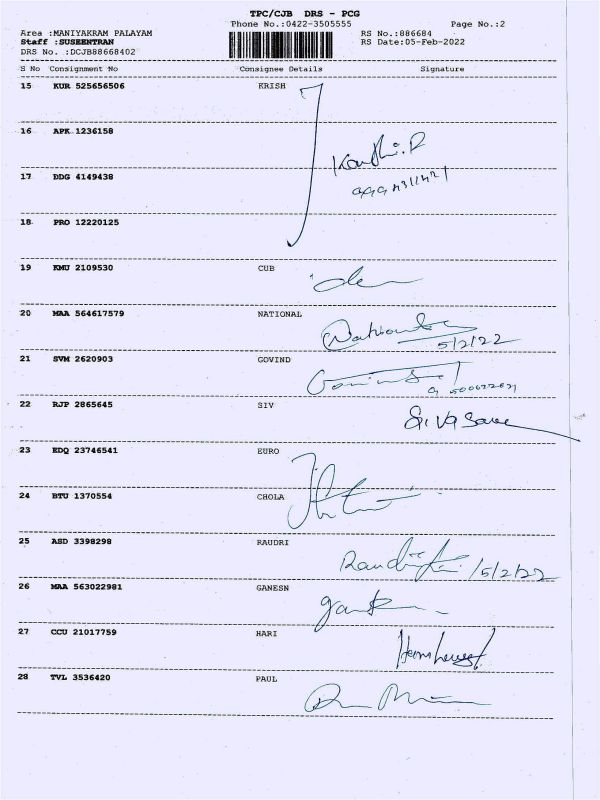 TPC/CJB DRS - PCG
Phone No.:0422-3505555 Page No.:2
Area :MANIYAKRAM PALAYAM RS No.:886684
Staff :SUSEENTRAN RS Date:05-Feb-2022
DRS No. :DCJB88668402
S No Consignment No Consignee Details Signature
15 KUR 525656506 KRISH
16 APK 1236158
17 DDG 4149438
18 PRO 12220125
19 KMU 2109530 CUB
20 MAA 564617579 NATIONAL
5/2/22
21 SVM 2620903 GOVIND
22 RJP 2865645 SIV
23 EDQ 23746541 EURO
24 BTU 1370554 CHOLA
25 ASD 3398298 RAUDRI
5/2/22
26 MAA 563022981 GANESN
27 CCU 21017759 HARI
28 TVL 3536420 PAUL